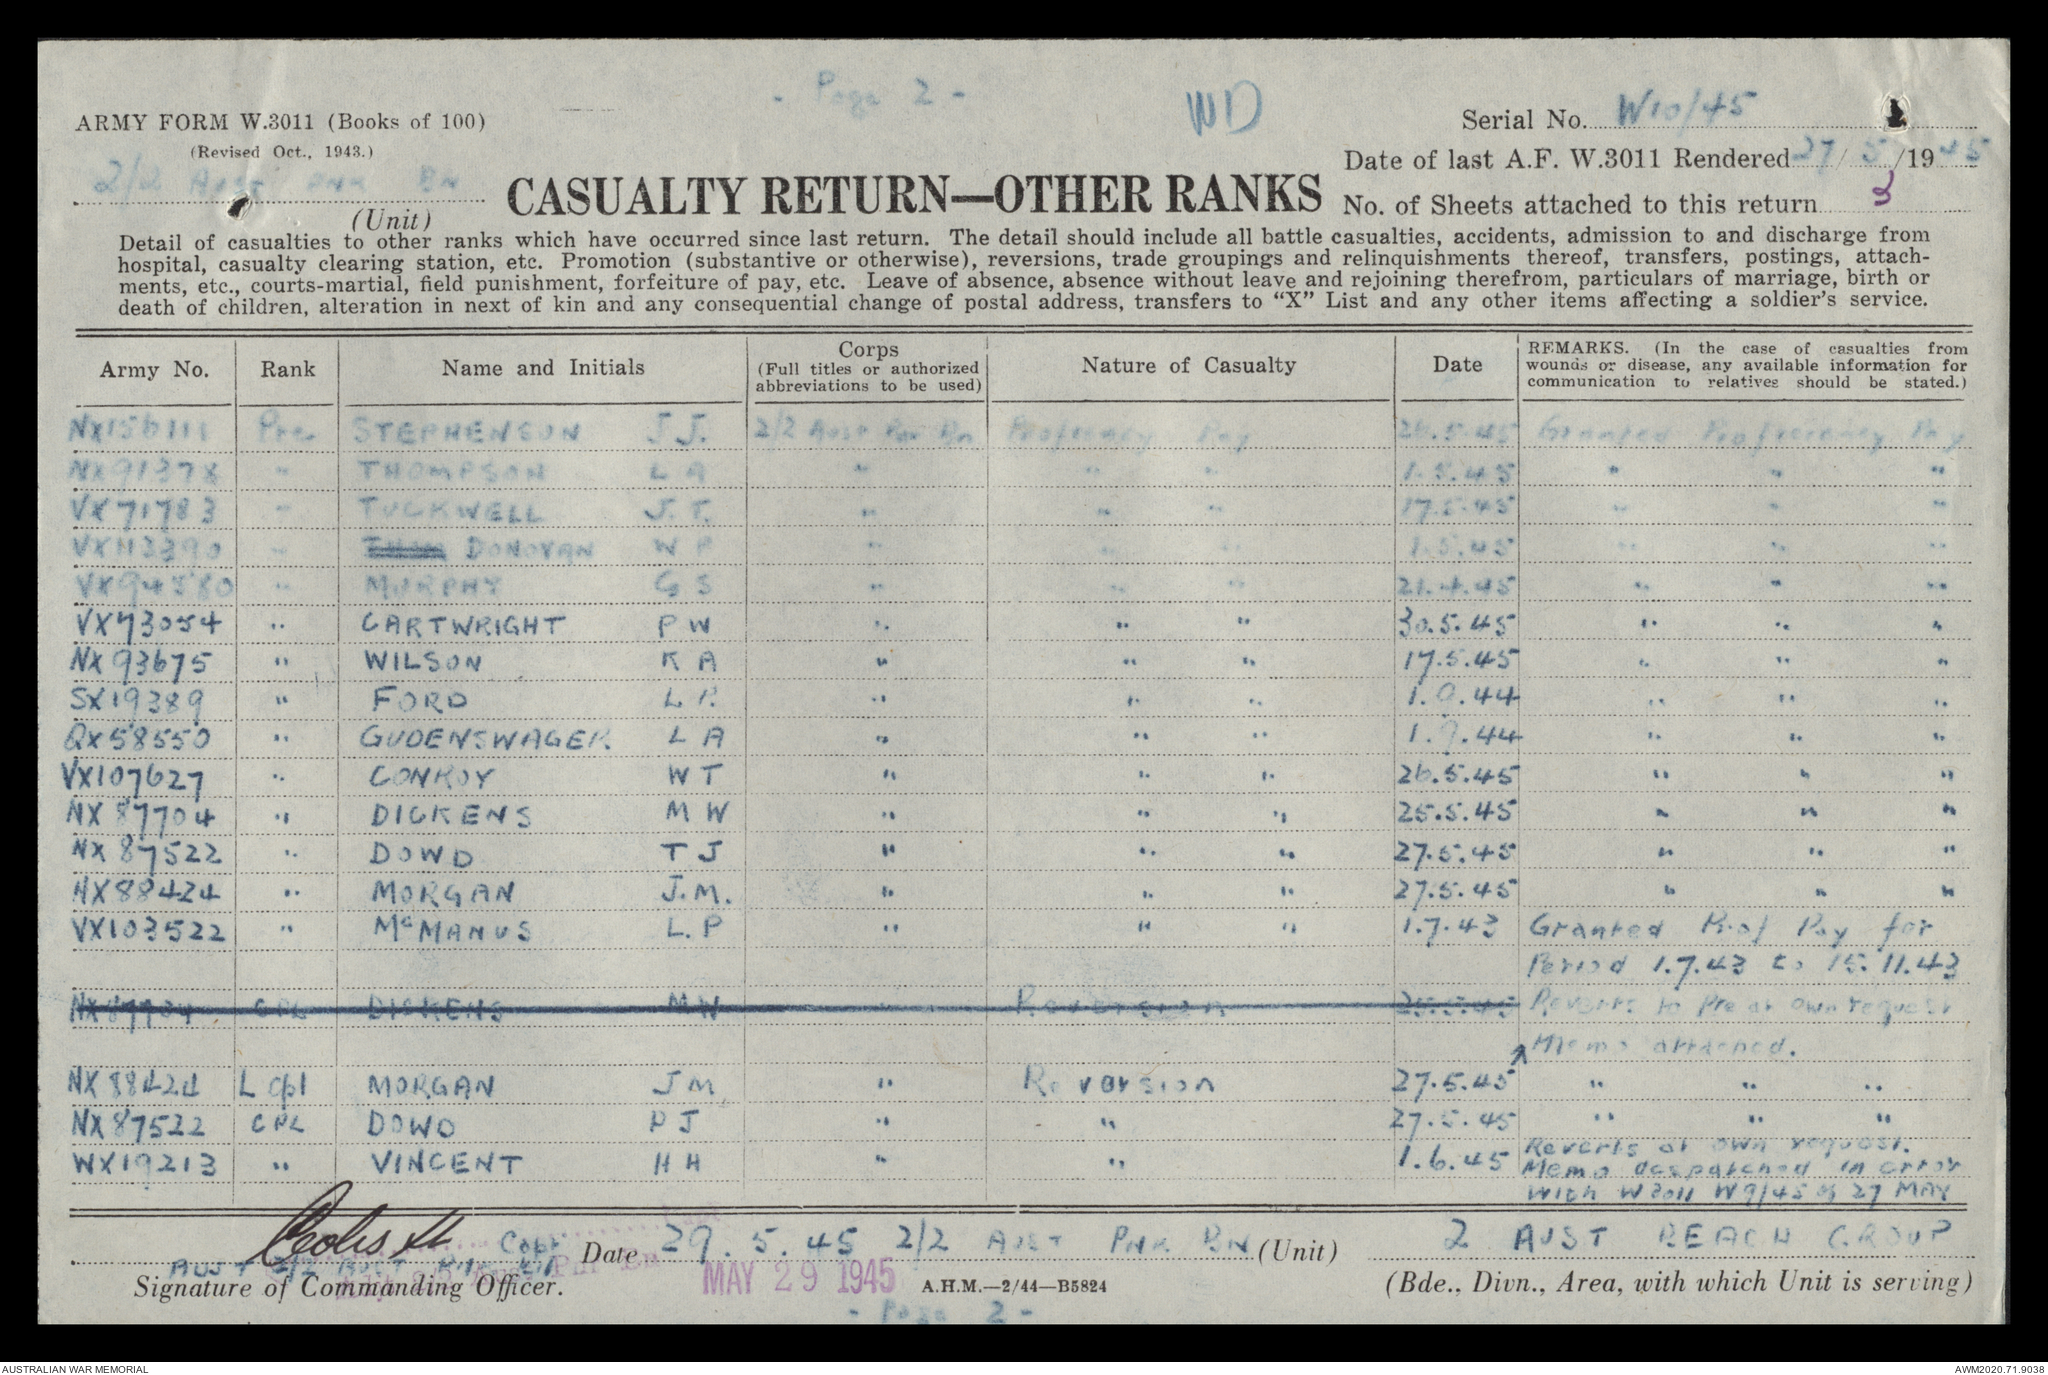 - Page 2 -
WD
ARMY FORM W.3011 (Books of 100)
(Revised Oct., 1943.)
Serial No. W10/45
Date of last A.F. W.3011 Rendered 27/5/1945
2/2 AUST PNR BN
(Unit)
CASUALTY RETURN—OTHER RANKS
No. of Sheets attached to this return 3
Detail of casualties to other ranks which have occurred since last return. The detail should include all battle casualties, accidents, admission to and discharge from
hospital, casualty clearing station, etc. Promotion (substantive or otherwise), reversions, trade groupings and relinquishments thereof, transfers, postings, attach-
ments, etc., courts-martial, field punishment, forfeiture of pay, etc. Leave of absence, absence without leave and rejoining therefrom, particulars of marriage, birth or
death of children, alteration in next of kin and any consequential change of postal address, transfers to "X" List and any other items affecting a soldier's service.
Army No. Rank Name and Initials Corps (Full titles or authorized abbreviations to be used) Nature of Casualty Date REMARKS. (In the case of casualties from wounds or disease, any available information for communication to relatives should be stated.)
NX156111 Pte. STEPHENSON J J. 2/2 Aust Pnr Bn Proficiency Pay 26.5.45 Granted Proficiency Pay
NX91378 " THOMPSON L A " " " 1.5.45 " " "
VX71783 " TUCKWELL J. T. " " " 17.5.45 " " "
VX113390 " DONOVAN W P " " " 1.5.45 " " "
VX94580 " MURPHY G S " " " 21.4.45 " " "
VX73054 " CARTWRIGHT P W " " " 30.5.45 " " "
NX93675 " WILSON K A " " " 17.5.45 " " "
SX19389 " FORD L. P. " " " 1.9.44 " " "
QX58550 " GUDENSWAGER. L A " " " 1.9.44 " " "
VX107627 " CONROY W T " " " 26.5.45 " " "
NX87704 " DICKENS M W " " " 25.5.45 " " "
NX87522 " DOWD T J " " " 27.5.45 " " "
NX88424 " MORGAN J.M. " " " 27.5.45 " " "
VX103522 " McMANUS L. P " " " 1.7.43 Granted Prof Pay for
Period 1.7.43 to 15.11.43
NX87704 CPL DICKENS M W " Reversion 25.5.45 Reverts to Pte at own request
Memo attached.
NX88424 L Cpl MORGAN J M. " Reversion 27.5.45 " " "
NX87522 CPL DOWD P J " " 27.5.45 " " "
WX19213 " VINCENT H H " " 1.6.45 Reverts at own request.
Memo despatched in error
with W3011 W9/45 of 27 MAY
Capt Date 29.5.45 2/2 AUST PNR BN (Unit) 2 AUST BEACH GROUP
AUST 2/2 AUST PNR BN
Signature of Commanding Officer. MAY 29 1945 A.H.M.—2/44—B5824 (Bde., Divn., Area, with which Unit is serving)
- Page 2 -
AUSTRALIAN WAR MEMORIAL AWM2020.71.9038